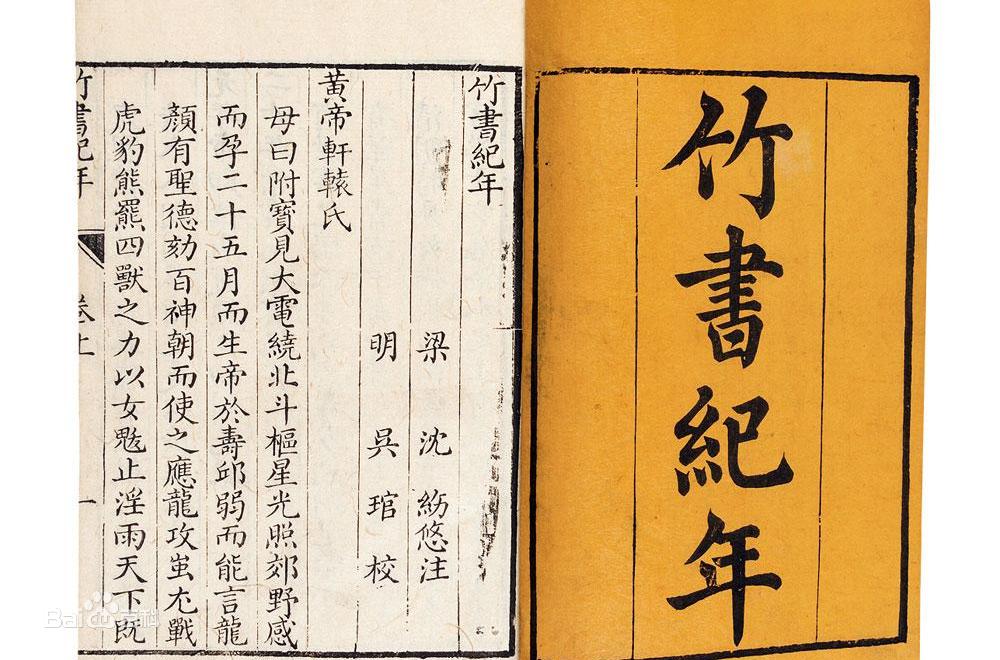 竹書紀年
竹書紀年
梁 沈 紛悠注
明 吳 琯 校
黃帝軒轅氏
母曰附寶見大電繞北斗樞星光照郊野感
而孕二十五月而生帝於壽邱弱而能言龍
顏有聖德劾百神朝而使之應龍攻蚩尤戰
虎豹熊羆四獸之力以女魃止淫雨天下既
竹書紀年 卷上 一
Bai百科